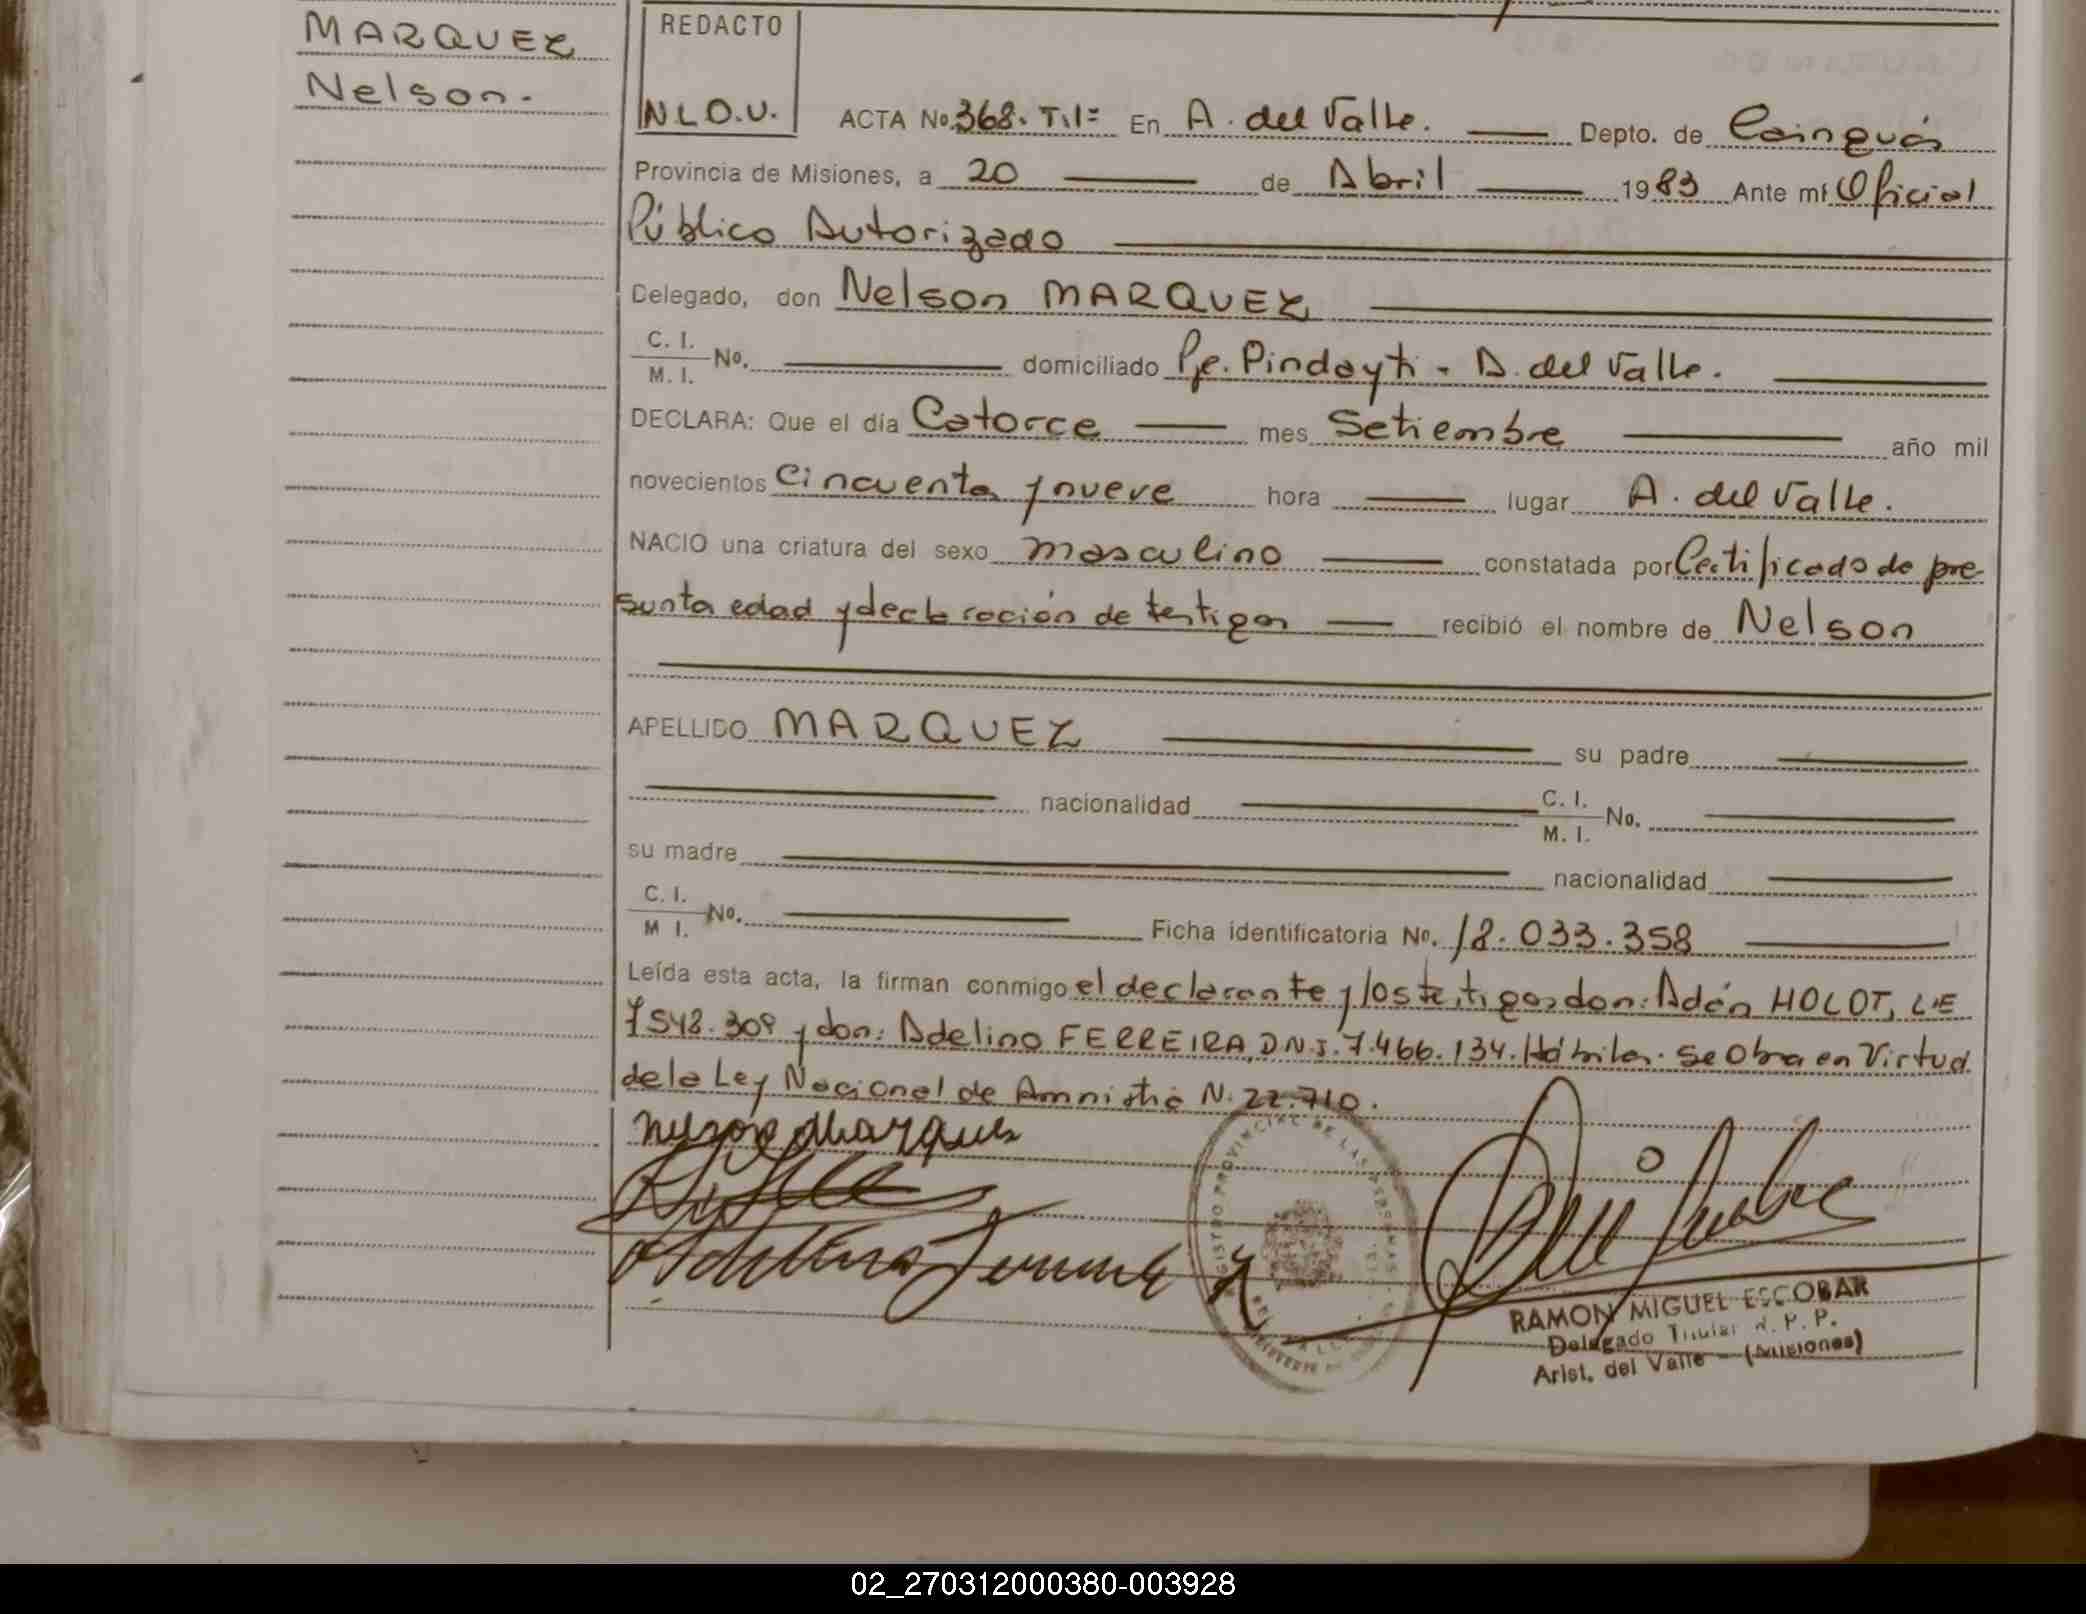 MARQUEZ
Nelson.-
REDACTO
N.L.O.V.
ACTA No. 368. T.1º En A. del Valle. Depto. de Cainguás
Provincia de Misiones, a 20 de Abril 1983 Ante mí Oficial
Público Autorizado
Delegado, don Nelson MARQUEZ
C. I.
M. I. No. domiciliado Pje. Pindayti - A. del Valle.
DECLARA: Que el día Catorce mes Setiembre año mil
novecientos Cincuenta y nueve hora lugar A. del Valle.
NACIO una criatura del sexo masculino constatada por Certificado de pre-
sunta edad y declaración de testigos recibió el nombre de Nelson
APELLIDO MARQUEZ su padre
nacionalidad C. I.
M. I. No.
su madre nacionalidad
C. I.
M I. No. Ficha identificatoria No. 18.033.358
Leída esta acta, la firman conmigo el declarante y los testigos don: Adán HOLOT, L.E
7.548.309 y don: Adelino FERREIRA, D.N.I. 7.466.134. Hábiles. Se Obra en Virtud
de la Ley Nacional de Amnistia N. 22.710.
REGISTRO PROVINCIAL DE LAS PERSONAS
RAMON MIGUEL ESCOBAR
Delegado Titular R. P. P.
Arist. del Valle - (Misiones)
02_270312000380-003928